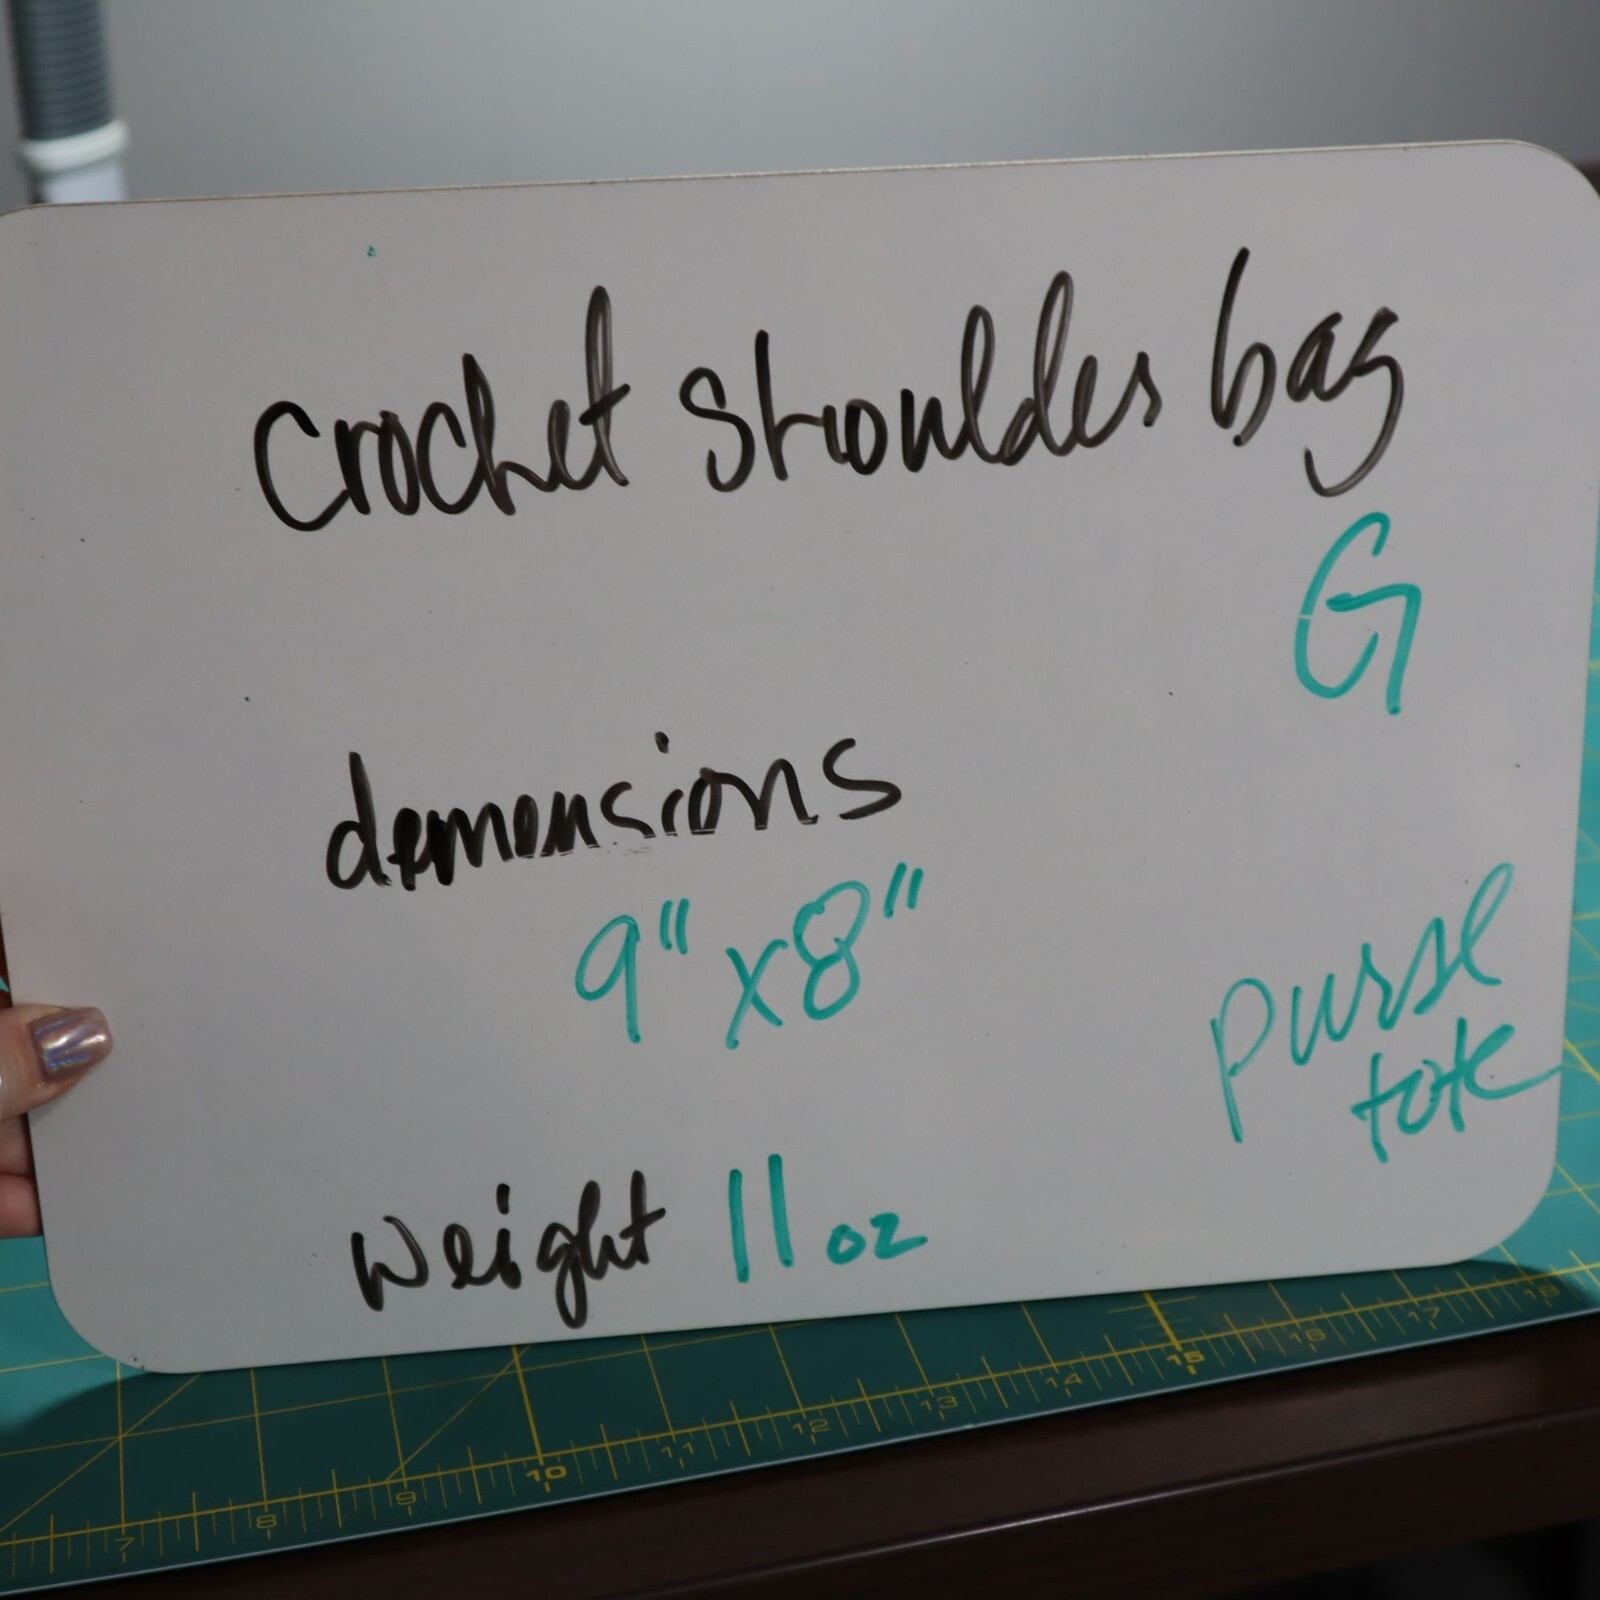 crochet shoulder bag
G
demensions
9" x 8"
purse
tote
weight 11 oz
7 8 9 10 11 12 13 14 15 16 17 18